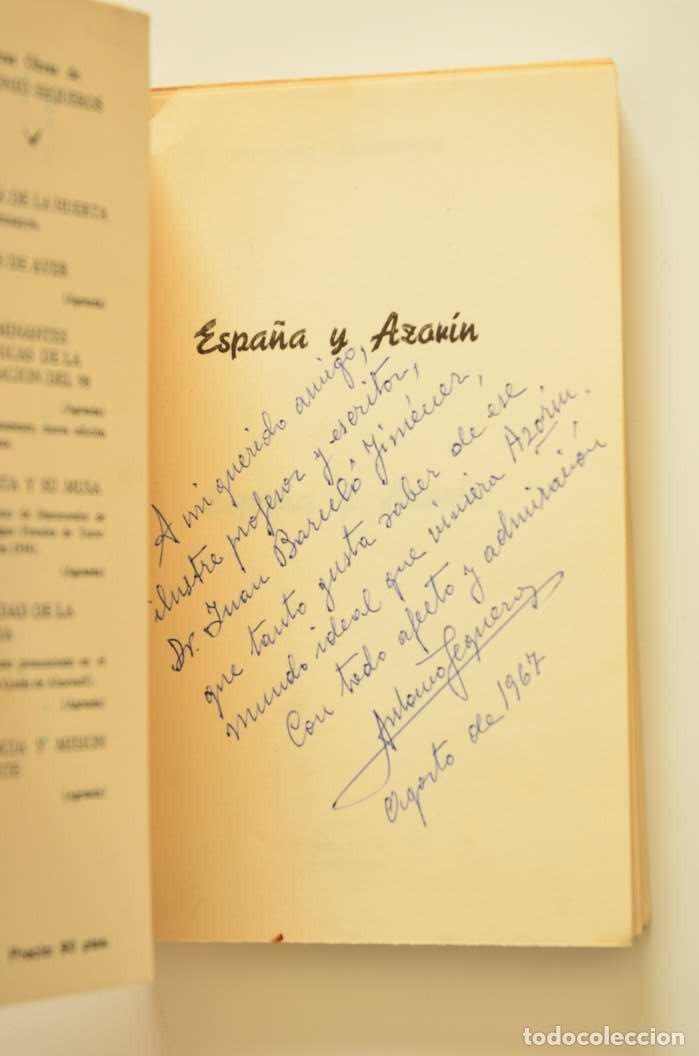 Obras de
SEQUEROS
DE LA HUERTA
DE AYER
(Agotada)
DE LA
DEL 98
(Agotada)
Y SU MUSA
(Agotada)
DE LA
(Agotada)
Y MISION
(Agotada)
Precio 80 ptas.
España y Azorín
A mi querido amigo,
ilustre profesor y escritor,
Dr. Juan Barceló Jiménez,
que tanto gusta saber de ese
mundo ideal que viviera Azorín.
Con todo afecto y admiración
Antonio Sequeros
Agosto de 1967
todocoleccion